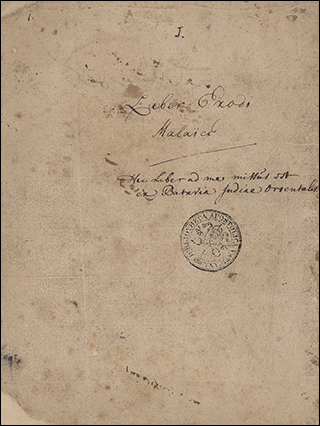 1.
I.
Liber Exodi
Malaicè
Hic Liber ad me missus est
ex Batavia Indiae Orientalis
BIBLIOTHECA APOSTOLICA VATICANA